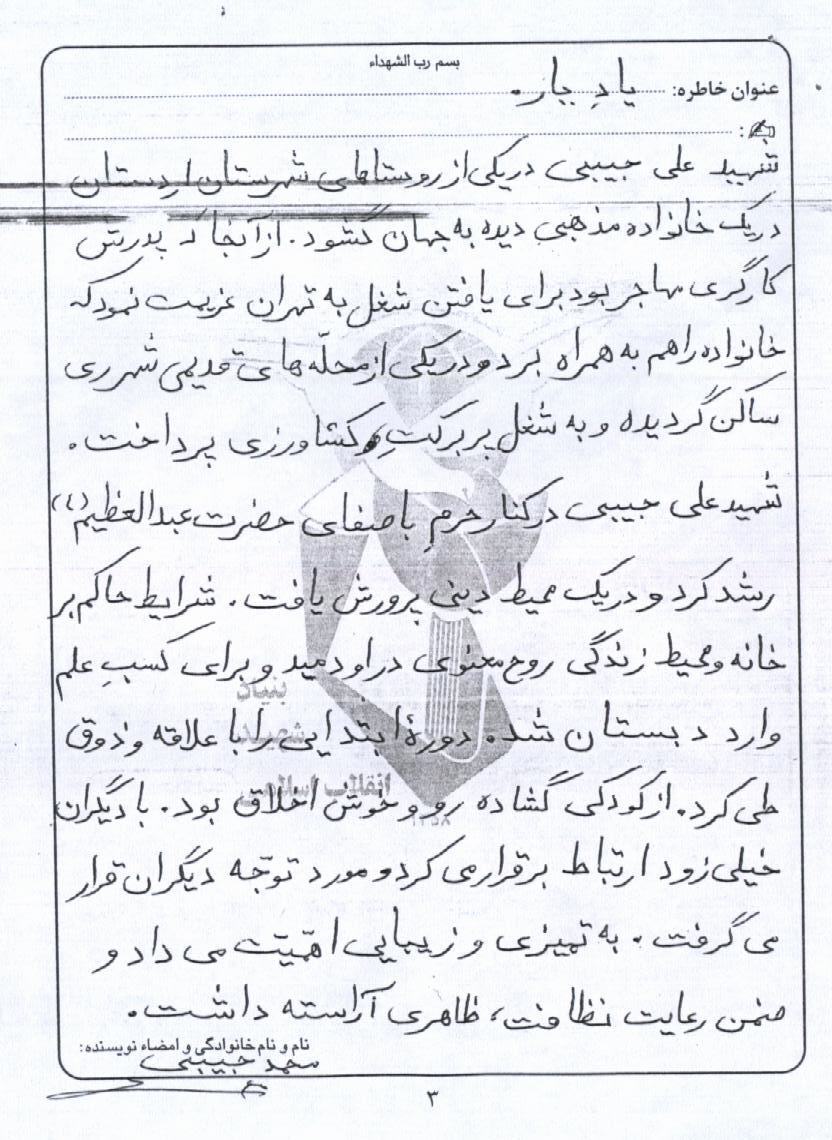 بسم رب الشهداء
عنوان خاطره: یادِ یار.
شهید علی حبیبی در یکی از روستاهای شهرستان اردستان
در یک خانواده مذهبی دیده به جهان گشود. از آنجا که پدرش
کارگری مهاجر بود برای یافتن شغل به تهران عزیمت نمود که
خانواده را هم به همراه برد و در یکی از محلّه های قدیمی شهر ری
ساکن گردیده و به شغل پر برکتِ کشاورزی پرداخت.
شهید علی حبیبی در کنار حرمِ باصفای حضرت عبدالعظیم (ع)
رشد کرد و در یک محیط دینی پرورش یافت. شرایط حاکم بر
خانه و محیط زندگی روح معنوی در او دمید و برای کسبِ علم
وارد دبستان شد. دورۀ ابتدایی را با علاقه و ذوق
طی کرد. از کودکی گشاده رو و خوش اخلاق بود. با دیگران
خیلی زود ارتباط برقرار می کرد و مورد توجّه دیگران قرار
می گرفت. به تمیزی و زیبایی اهمیّت می داد و
ضمن رعایت نظافت، ظاهری آراسته داشت.
نام و نام خانوادگی و امضاء نویسنده:
حبیبی
بنیاد
شهید
انقلاب اسلامی
۱۳۵۸
۳